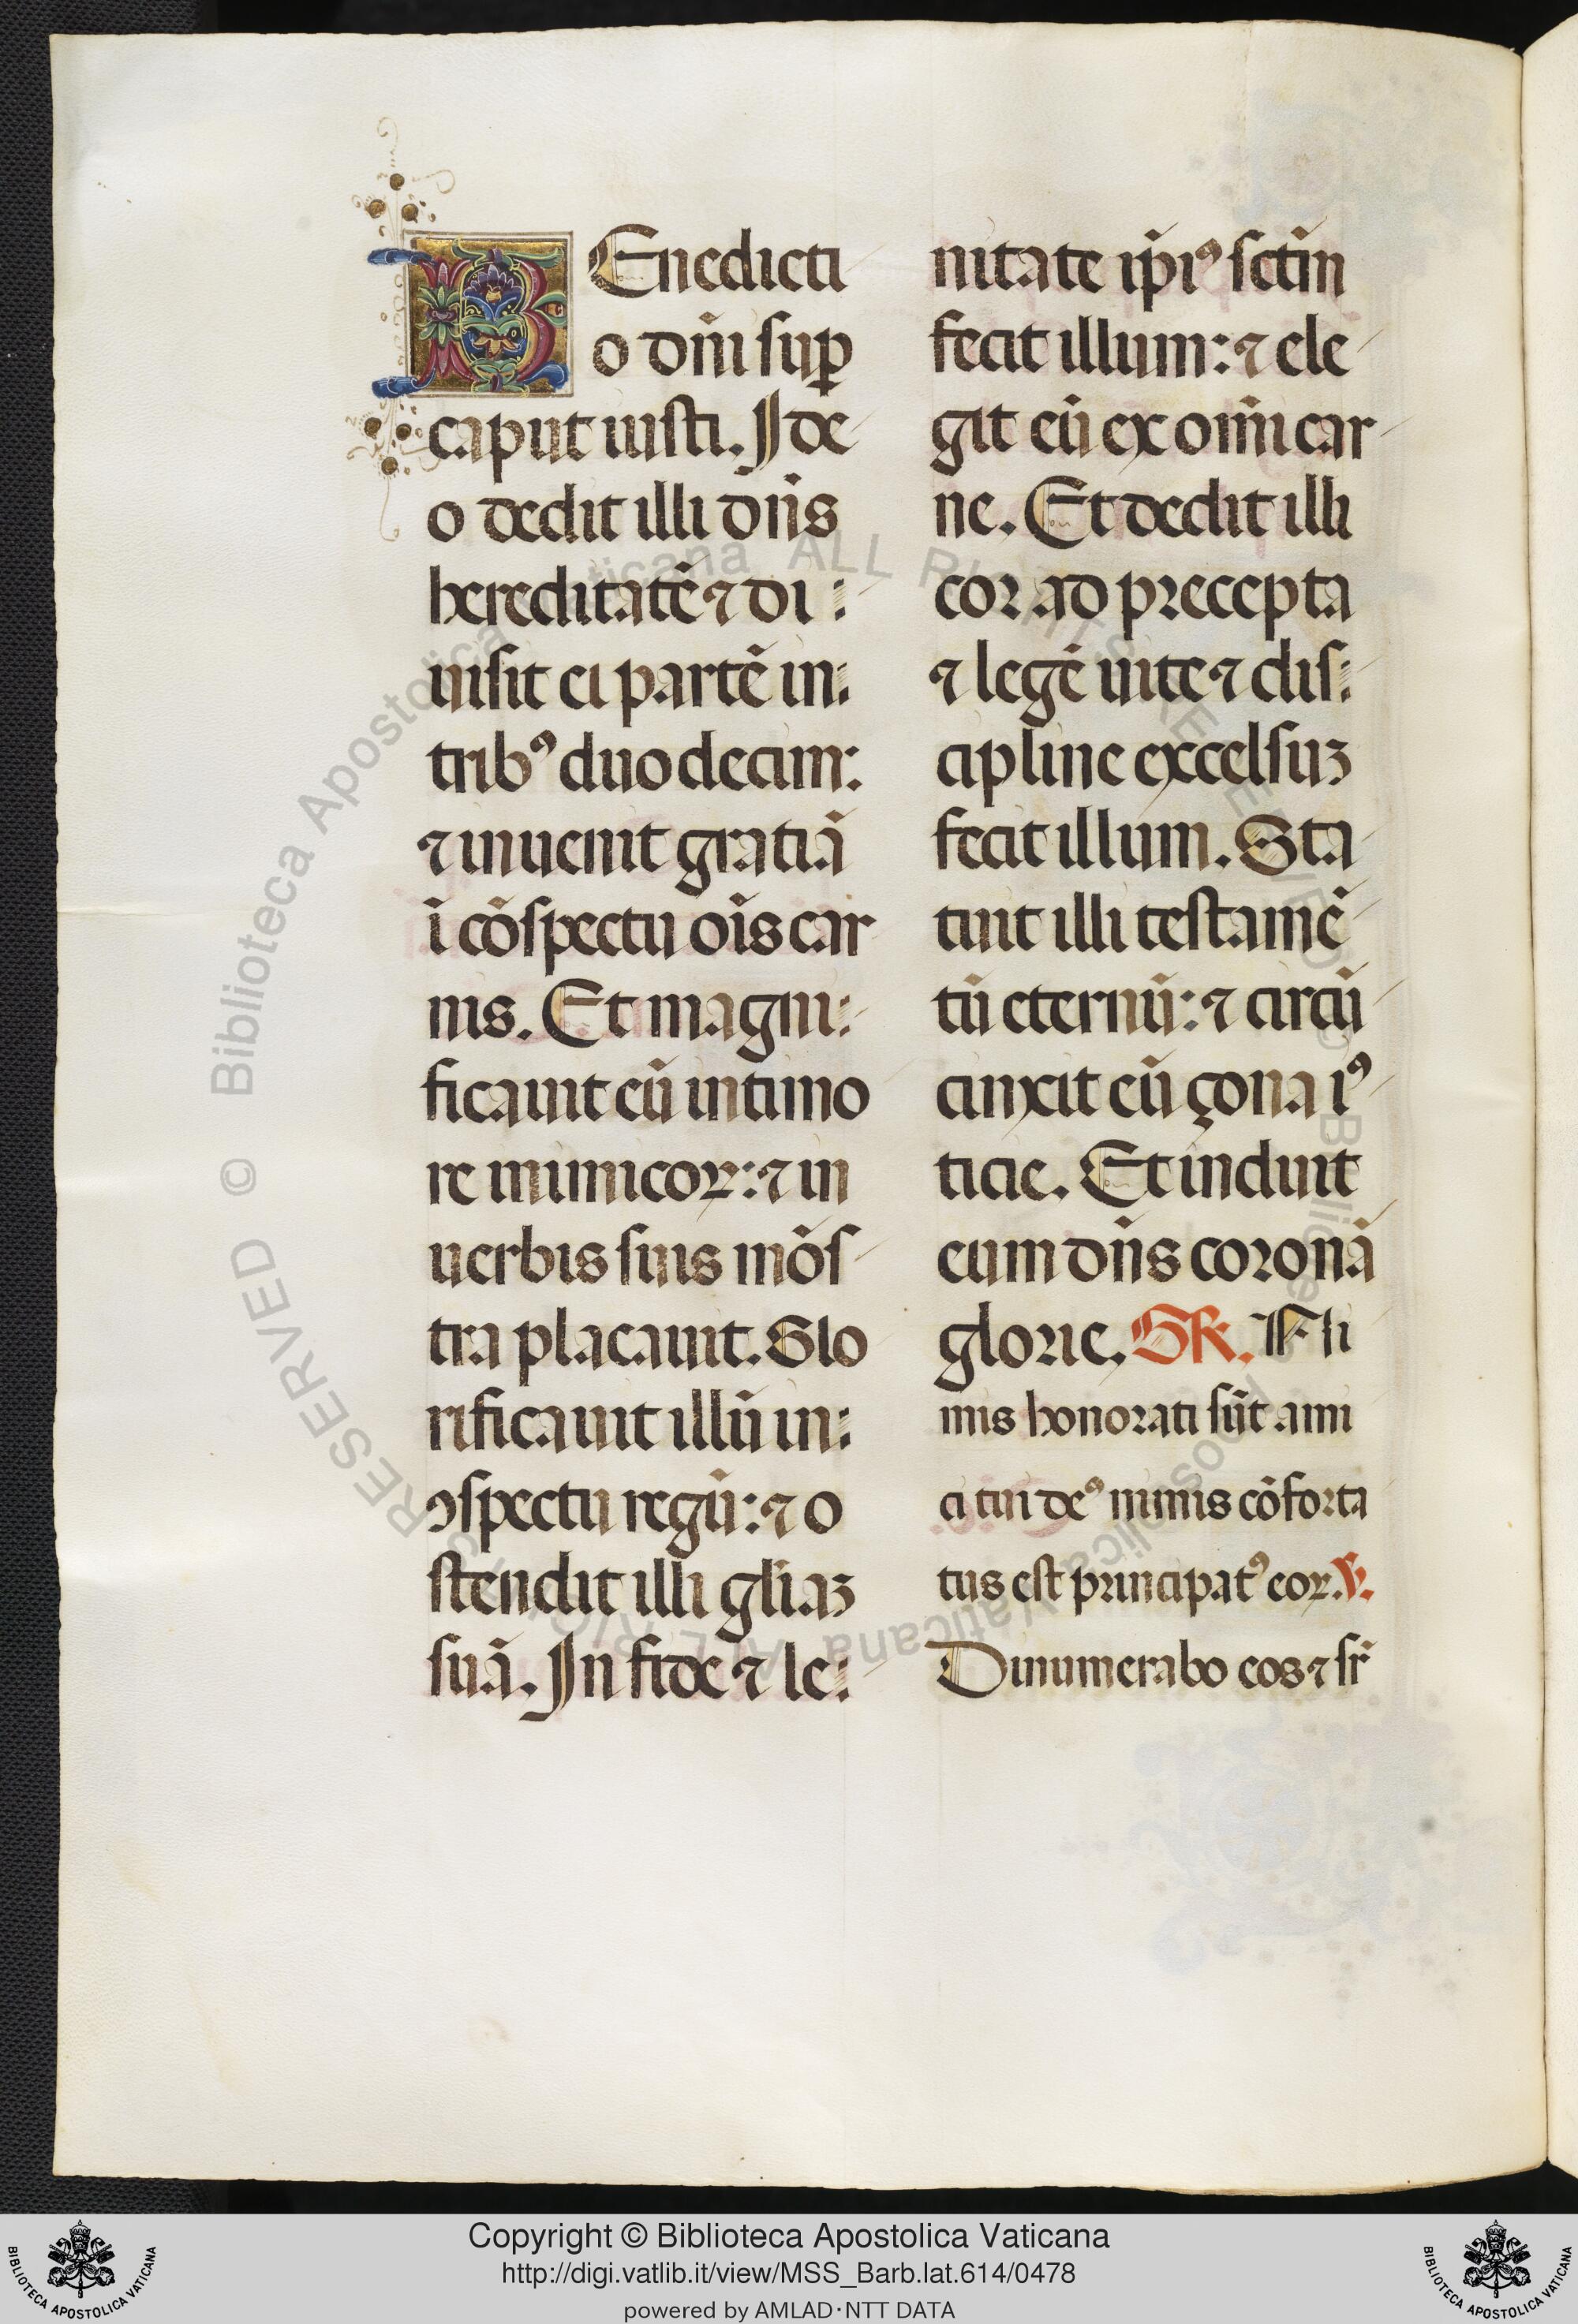 BEnedicti
o dn̄i sup̱
caput iusti. Ide
o dedit illi dn̄s
hereditatē ⁊ di :
uisit ei partē in:
tribꝰ duodecim:
⁊ inuenit gratiā
ī cōspectu ōis car
nis. Et magni:
ficauit eū in timo
re inimicoꝝ: ⁊ in
uerbis suis mōs
tra placauit. Glo
rificauit illū in:
ꝯspectu regū: ⁊ o
stendit illi gl̄iaꝫ
suā. In fide ⁊ le:
nitate ip̄iꝰ sct̄m
fecit illum: ⁊ ele
git eū ex om̄i car
ne. Et dedit illi
cor ad precepta
⁊ legē uite ⁊ dis:
cipline excelsuꝫ
fecit illum. Sta
tuit illi testamē
tū eternū: ⁊ circū
cinxit eū çona iꝰ
ticie. Et induit
eum dn̄s coronā
glorie. GR. Ni
mis honorati sūt ami
ci tui deꝰ nimis cōforta
tus est principatꝰ eoꝝ. V.
Dinumerabo eos ⁊ sr̄
© Biblioteca Apostolica Vaticana ALL RIGHTS RESERVED
Copyright © Biblioteca Apostolica Vaticana
http://digi.vatlib.it/view/MSS_Barb.lat.614/0478
powered by AMLAD·NTT DATA
BIBLIOTECA APOSTOLICA VATICANA
BIBLIOTECA APOSTOLICA VATICANA